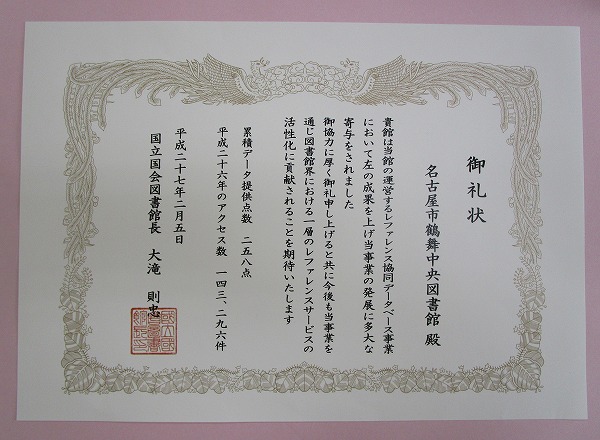 御礼状
名古屋市鶴舞中央図書館 殿
貴館は当館の運営するレファレンス協同データベース事業
において左の成果を上げ当事業の発展に多大な
寄与をされました
御協力に厚く御礼申し上げると共に今後も当事業を
通じ図書館界における一層のレファレンスサービスの
活性化に貢献されることを期待いたします
累積データ提供点数 二五八点
平成二十六年のアクセス数 一四三、二九六件
平成二十七年二月五日
国立国会図書館長 大滝 則忠